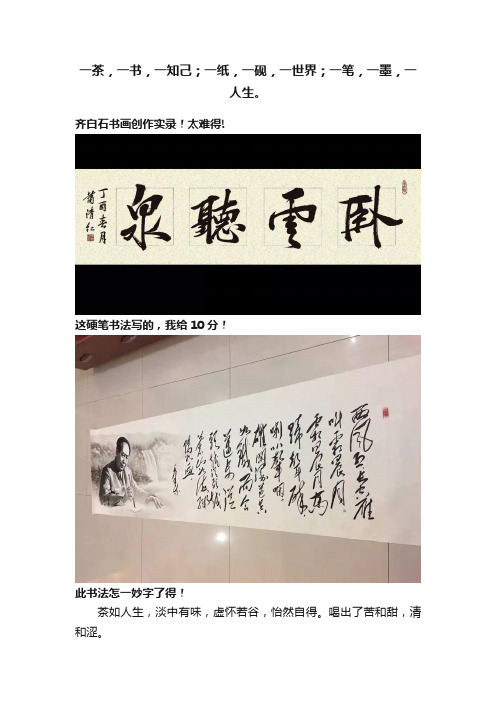 一茶，一书，一知己；一纸，一砚，一世界；一笔，一墨，一
人生。
齐白石书画创作实录！太难得!
卧雲聽泉
丁酉春月
这硬笔书法写的，我给10分！
西风烈长空雁
叫霜晨月
霜晨月马
蹄声碎
喇叭声咽
雄关漫道真
如铁而今
迈步从
头越从头越
苍山如海残
阳如血
此书法怎一妙字了得！
茶如人生，淡中有味，虚怀若谷，怡然自得。喝出了苦和甜，清
和涩。